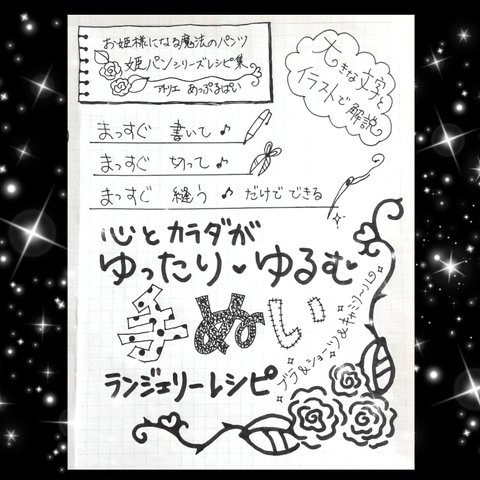 お姫様になる魔法のパンツ
姫パンシリーズレシピ集
アトリエ あっぷるぱい
大きな文字と
イラストで解説
まっすぐ 書いて♪
まっすぐ 切って♪
まっすぐ 縫う♪ だけでできる
心とカラダが
ゆったり♥ゆるむ
手ぬい
ブラ&ショーツ&キャミソールの
ランジェリーレシピ